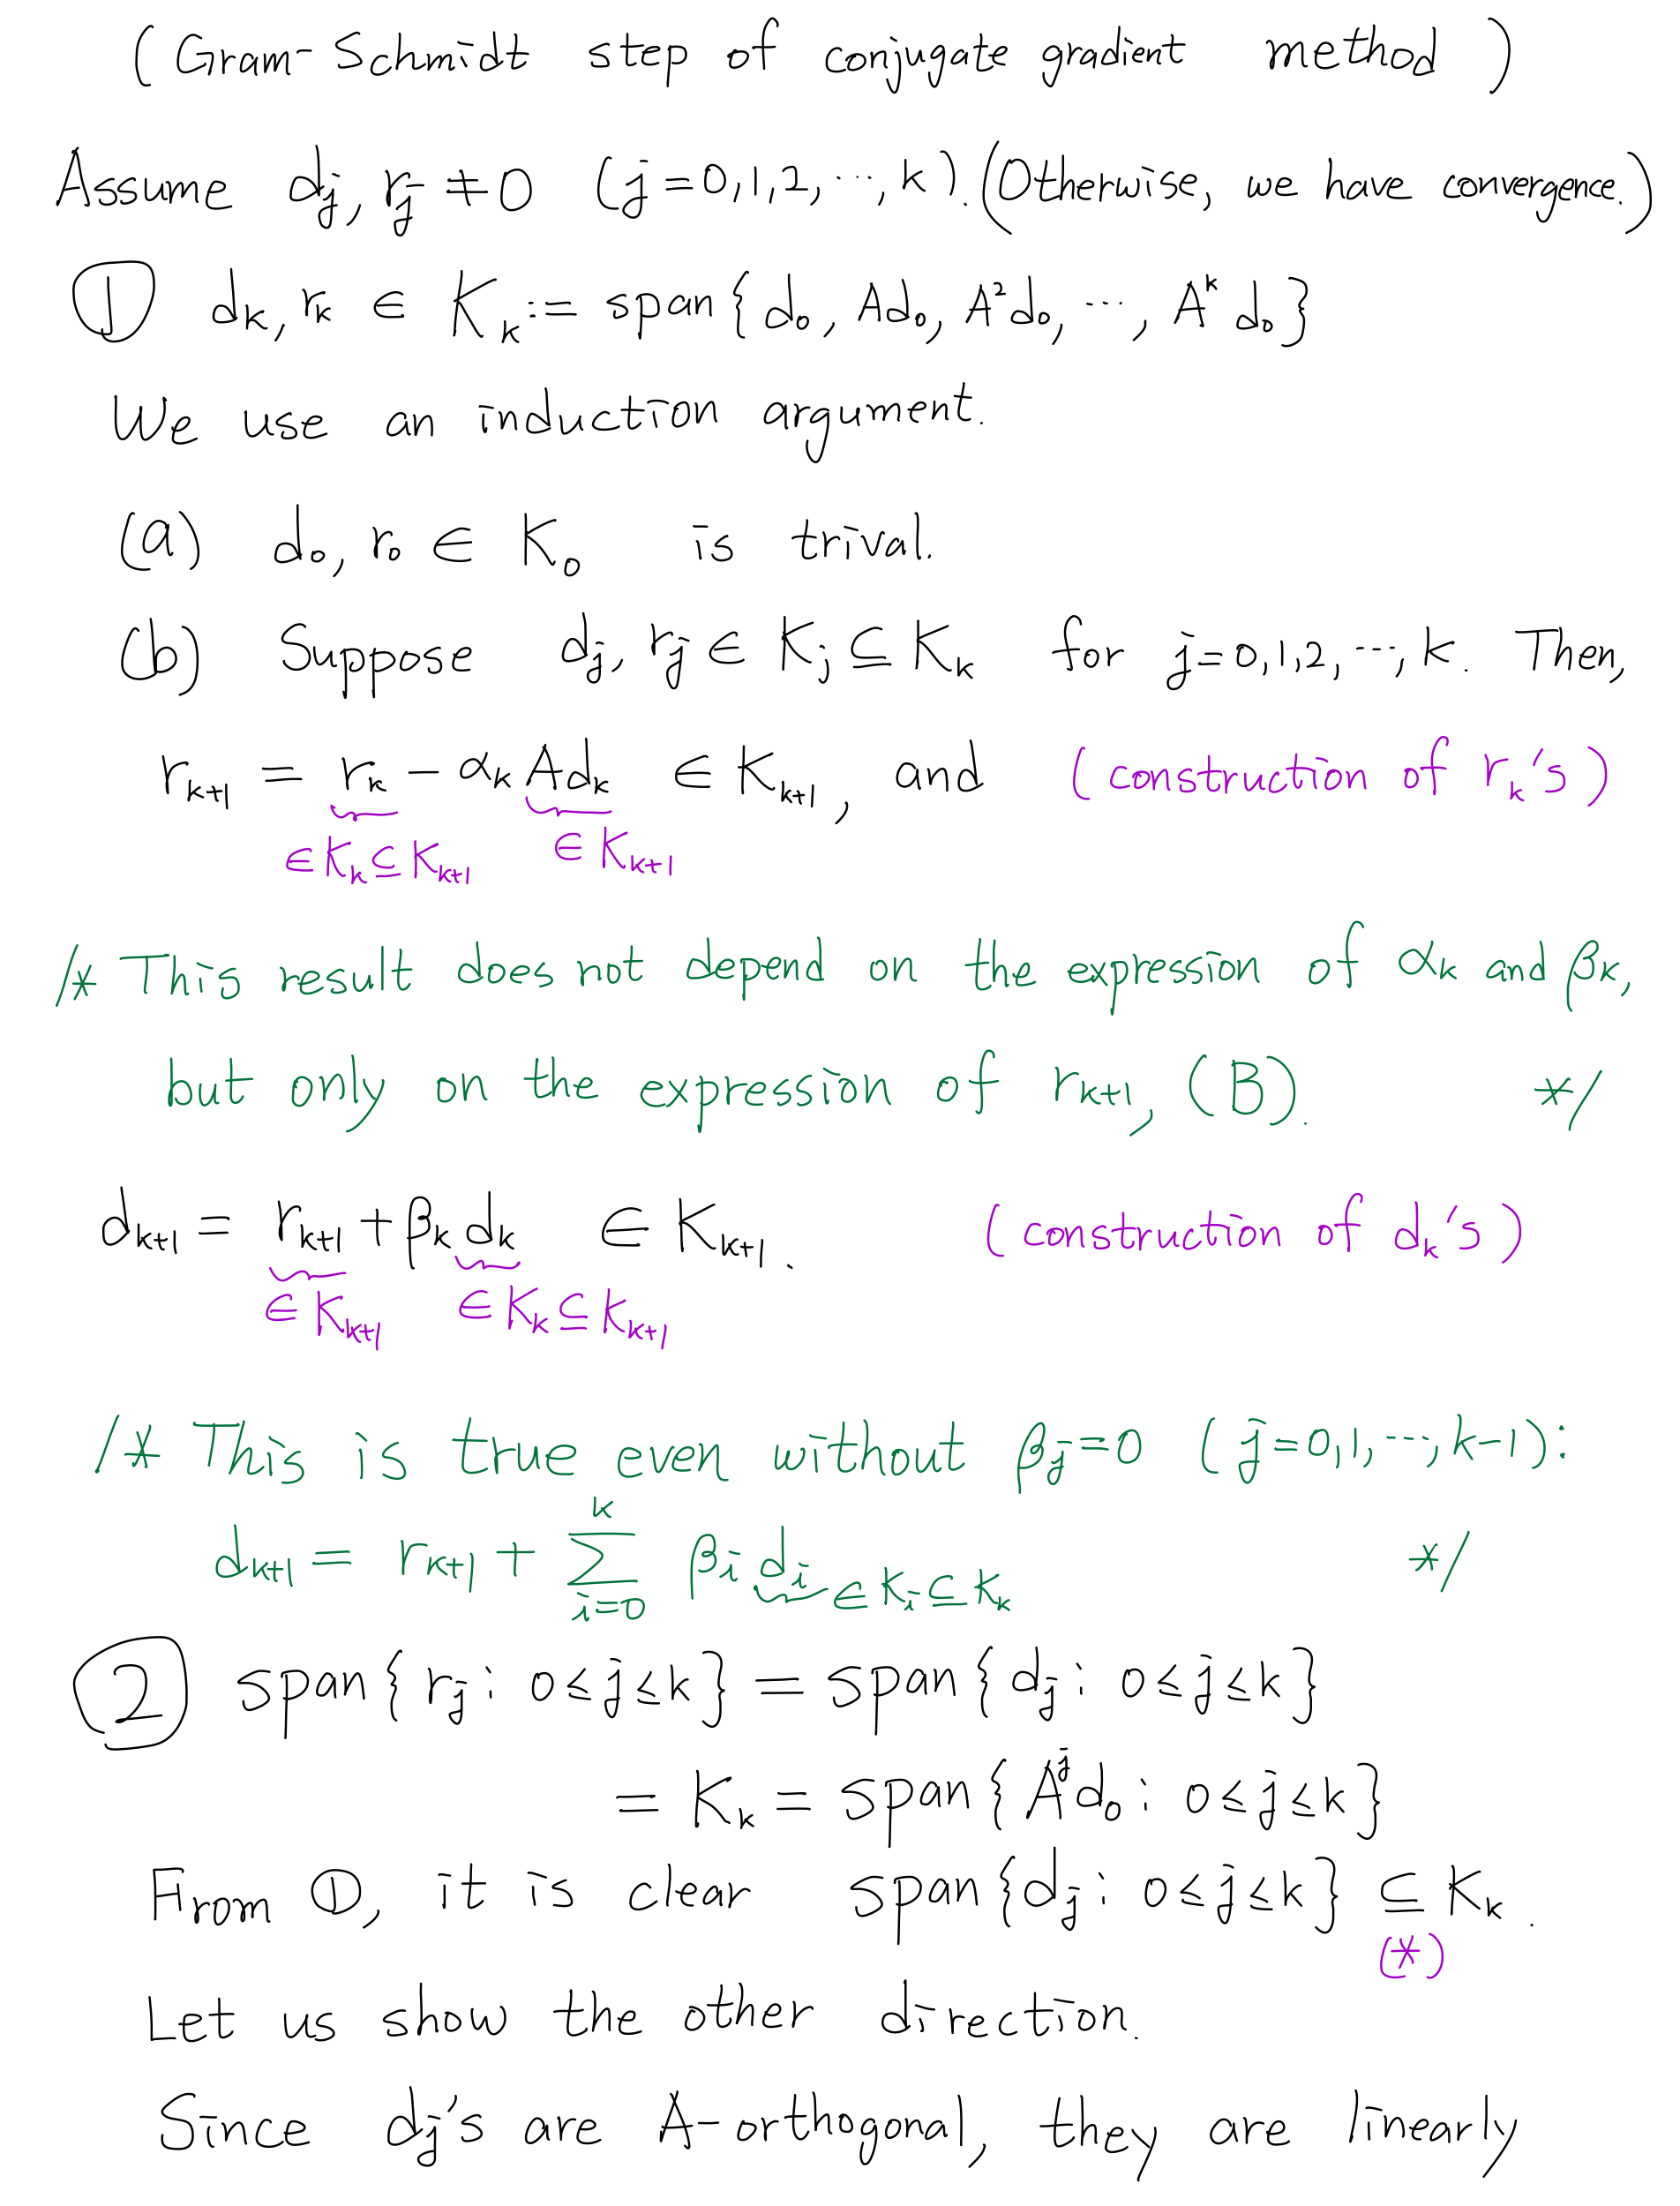 (Gram-Schmidt step of conjugate gradient method)
Assume dj, rj ≠ 0 (j=0,1,2,⋯,k). (Otherwise, we have convergence.)
① dk, rk ∈ Kk := span{d0, Ad0, A²d0, ⋯, A^k d0}
We use an induction argument.
(a) d0, r0 ∈ K0 is trival.
(b) Suppose dj, rj ∈ Kj ⊆ Kk for j=0,1,2,⋯,k. Then,
rk+1 = rk − αk Adk ∈ Kk+1, and (construction of rk's)
∈Kk⊆Kk+1 ∈Kk+1
/* This result does not depend on the expression of αk and βk,
but only on the expression of rk+1, (B). */
dk+1 = rk+1 + βk dk ∈ Kk+1. (construction of dk's)
∈Kk+1 ∈Kk⊆Kk+1
/* This is true even without βj=0 (j=0,1,⋯,k−1):
dk+1 = rk+1 + Σ_{i=0}^{k} βi di ∈Ki⊆Kk */
② span{rj : 0≤j≤k} = span{dj : 0≤j≤k}
= Kk = span{A^j d0 : 0≤j≤k}
From ①, it is clear span{dj : 0≤j≤k} ⊆ Kk.
(*)
Let us show the other direction.
Since dj's are A-orthogonal, they are linearly